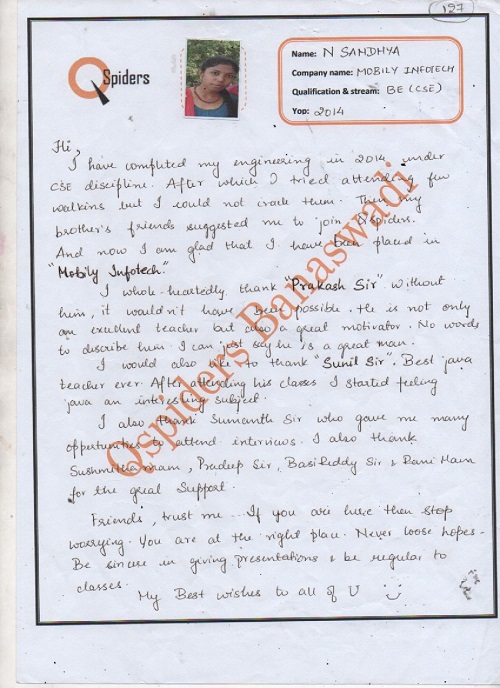 127
QSpiders
Name: N SANDHYA
Company name: MOBILY INFOTECH
Qualification & stream: BE (CSE)
Yop: 2014
Hi,
I have completed my engineering in 2014 under
CSE discipline. After which I tried attending few
walkins but I could not crack them. Then my
brother's friends suggested me to join Qspiders.
And now I am glad that I have been placed in
"Mobily Infotech."
I whole-heartedly thank "Prakash Sir" Without
him, it wouldn't have been possible. He is not only
an excellent teacher but also a great motivator. No words
to describe him. I can just say he is a great man.
I would also like to thank "Sunil Sir". Best java
teacher ever. After attending his classes I started feeling
java an interesting subject.
I also thank Sumanth Sir who gave me many
opportunities to attend interviews. I also thank
Sushmitha mam, Pradeep Sir, BasiReddy Sir & Rani Mam
for the great Support.
Friends, trust me... If you are here then stop
worrying. You are at the right place. Never loose hopes.
Be sincere in giving presentations & be regular to
classes.
My Best wishes to all of U
Qspiders Banaswadi